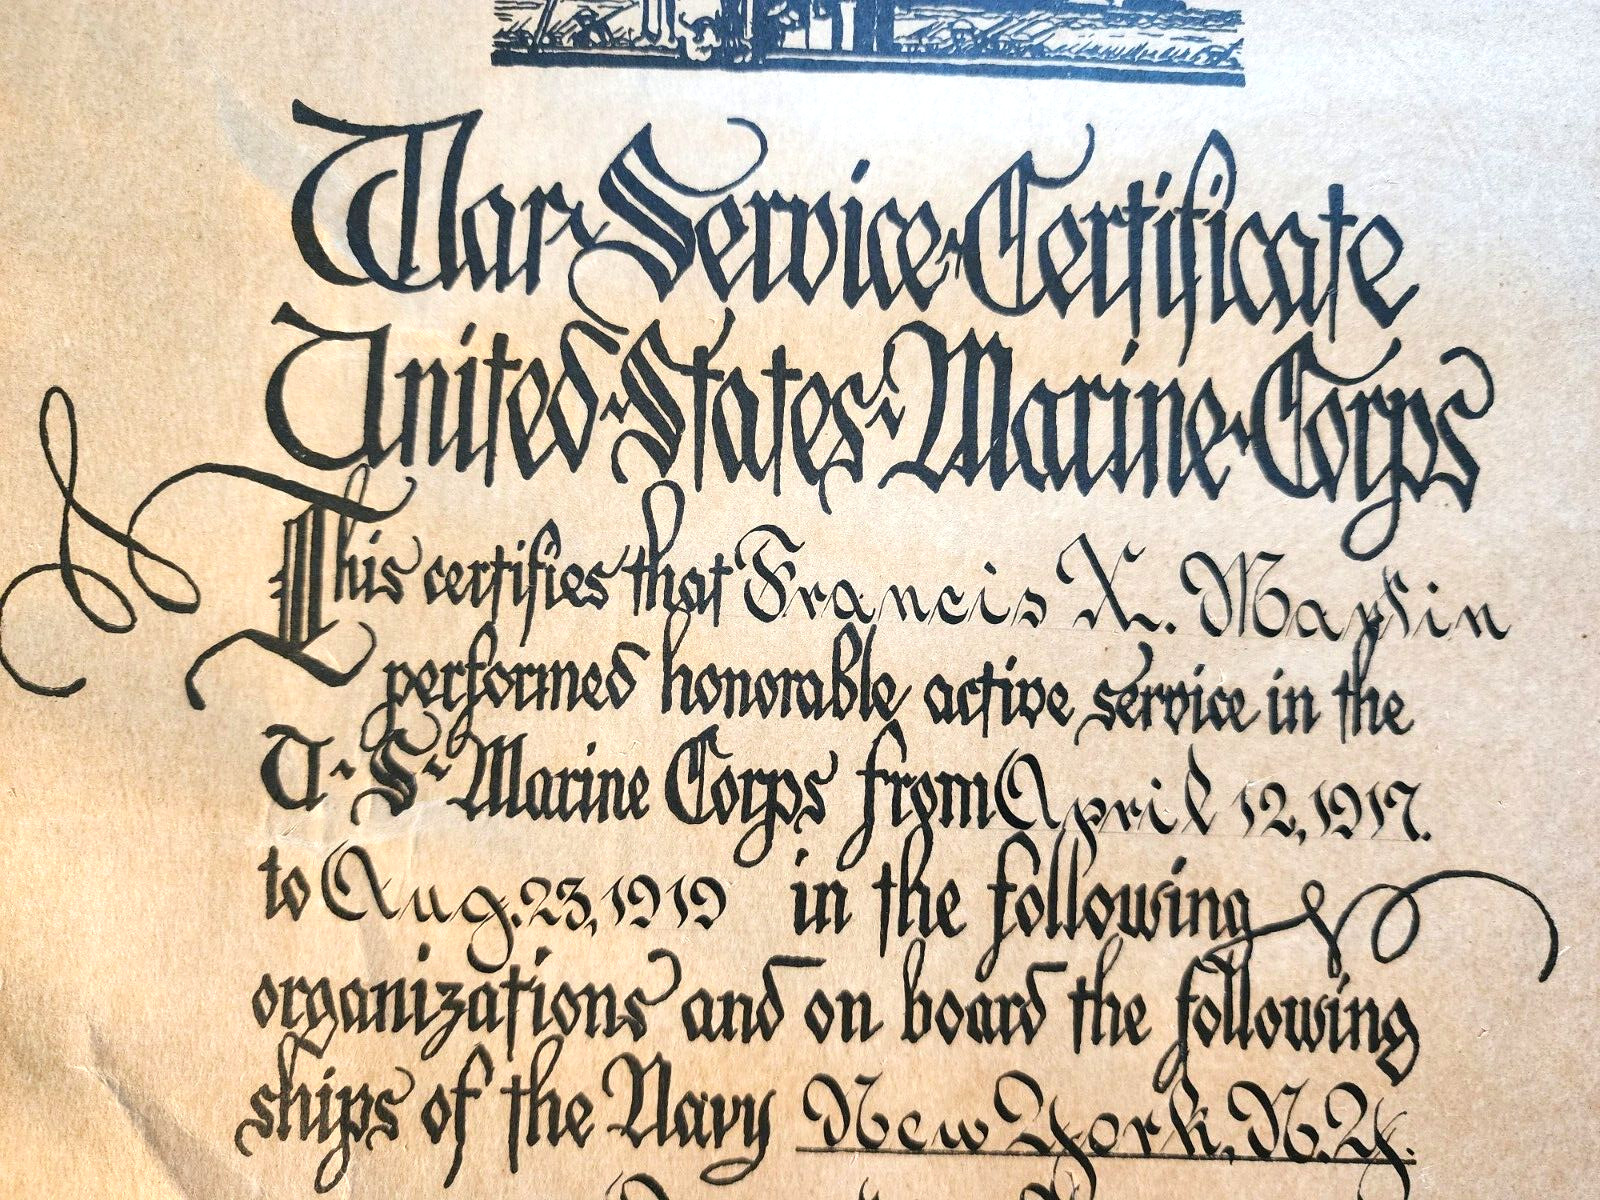 War Service Certificate
United States Marine Corps
This certifies that Francis X. Maylin
performed honorable active service in the
U. S. Marine Corps from April 12, 1917.
to Aug. 23, 1919 in the following
organizations and on board the following
ships of the Navy New York, N.Y.